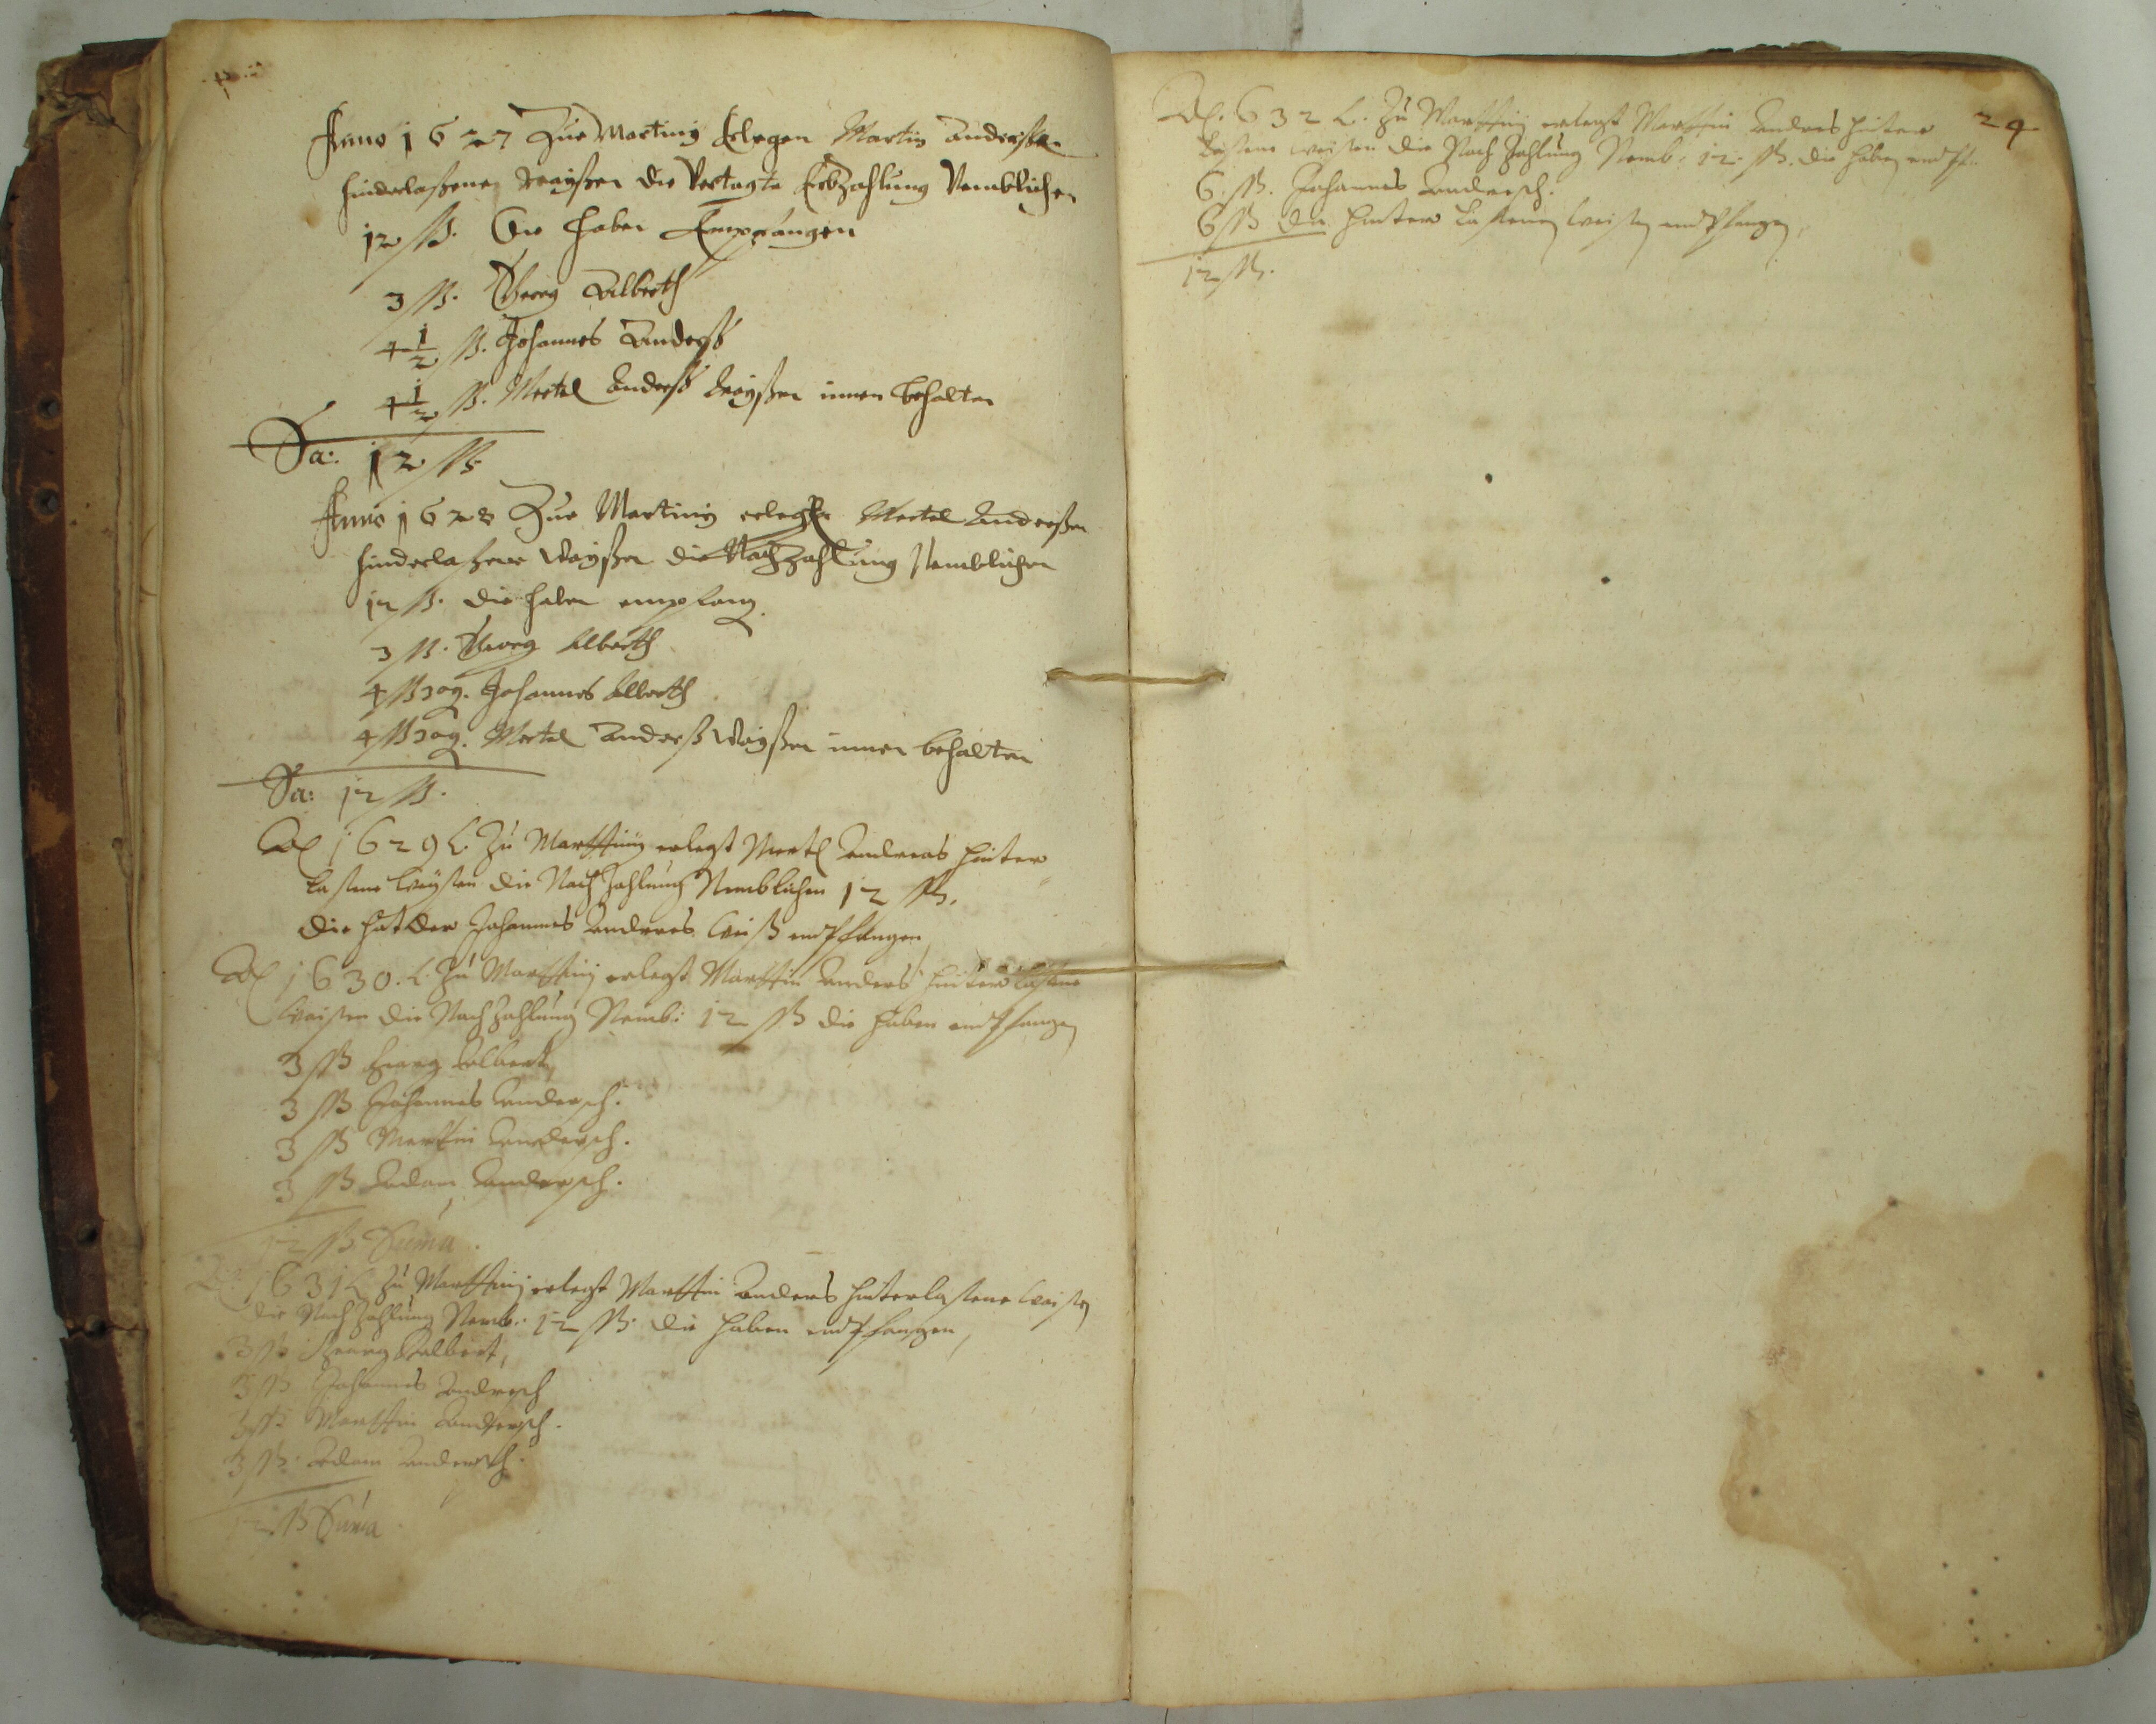 Anno 1627 Zue Martinij Erlegen Martin Anderßen
hinderlaßene Wayßen die Vertagte Erbzahlung Nemblichen
12 ß. Die haben Empfangen
3 ß. Georg Alberth
4 1/2 ß. Johannes Anderß
4 1/2 ß. Mertel Anderß Wayßen innen behalten
Sa: 12 ß
Anno 1628 Zue Martinij erlegen Mertel Anderßen
hinderlaßene Wayßen die Nachzahlung Nemblichen
12 ß. die haben empfang
3 ß. Georg Alberth
4 ß 30 g. Johannes Alberth
4 ß 30 g. Mertel Anderß Wayßen innen behalten
Sa: 12 ß.
1629 Zu Marttinij erlegt Mertl Andreas hinter
laßene Weyßen die Nach Zahlung Nemblichen 12 ß.
die hat der Johannes Andres entpfangen
1630. Zu Marttinij erlegt Marttin Anders hinter laßene
Weisen die Nach Zahlung Nemb: 12 ß die haben entpfangen
3 ß Georg Albert
3 ß Johannes Andersch.
3 ß Marttin Andersch.
3 ß Adam Andersch.
12 ß Suma.
1631 Zu Marttinij erlegt Marttin Anders hinterlaßene Weisen
die Nach Zahlung Nemb: 12 ß. die haben entpfangen,
3 ß Georg Albert,
3 ß Johannes Andersch
3 ß Marttin Andersch.
3 ß. Adam Andersch.
12 ß Suma
24
632 Zu Marttinij erlegt Marttin Anders hinter
laßene weisen die Nach Zahlung Nemb: 12 ß. die haben
6 ß. Johannes Andersch.
6 ß die hinter laßenen Weisen entpfangen,
12 ß.